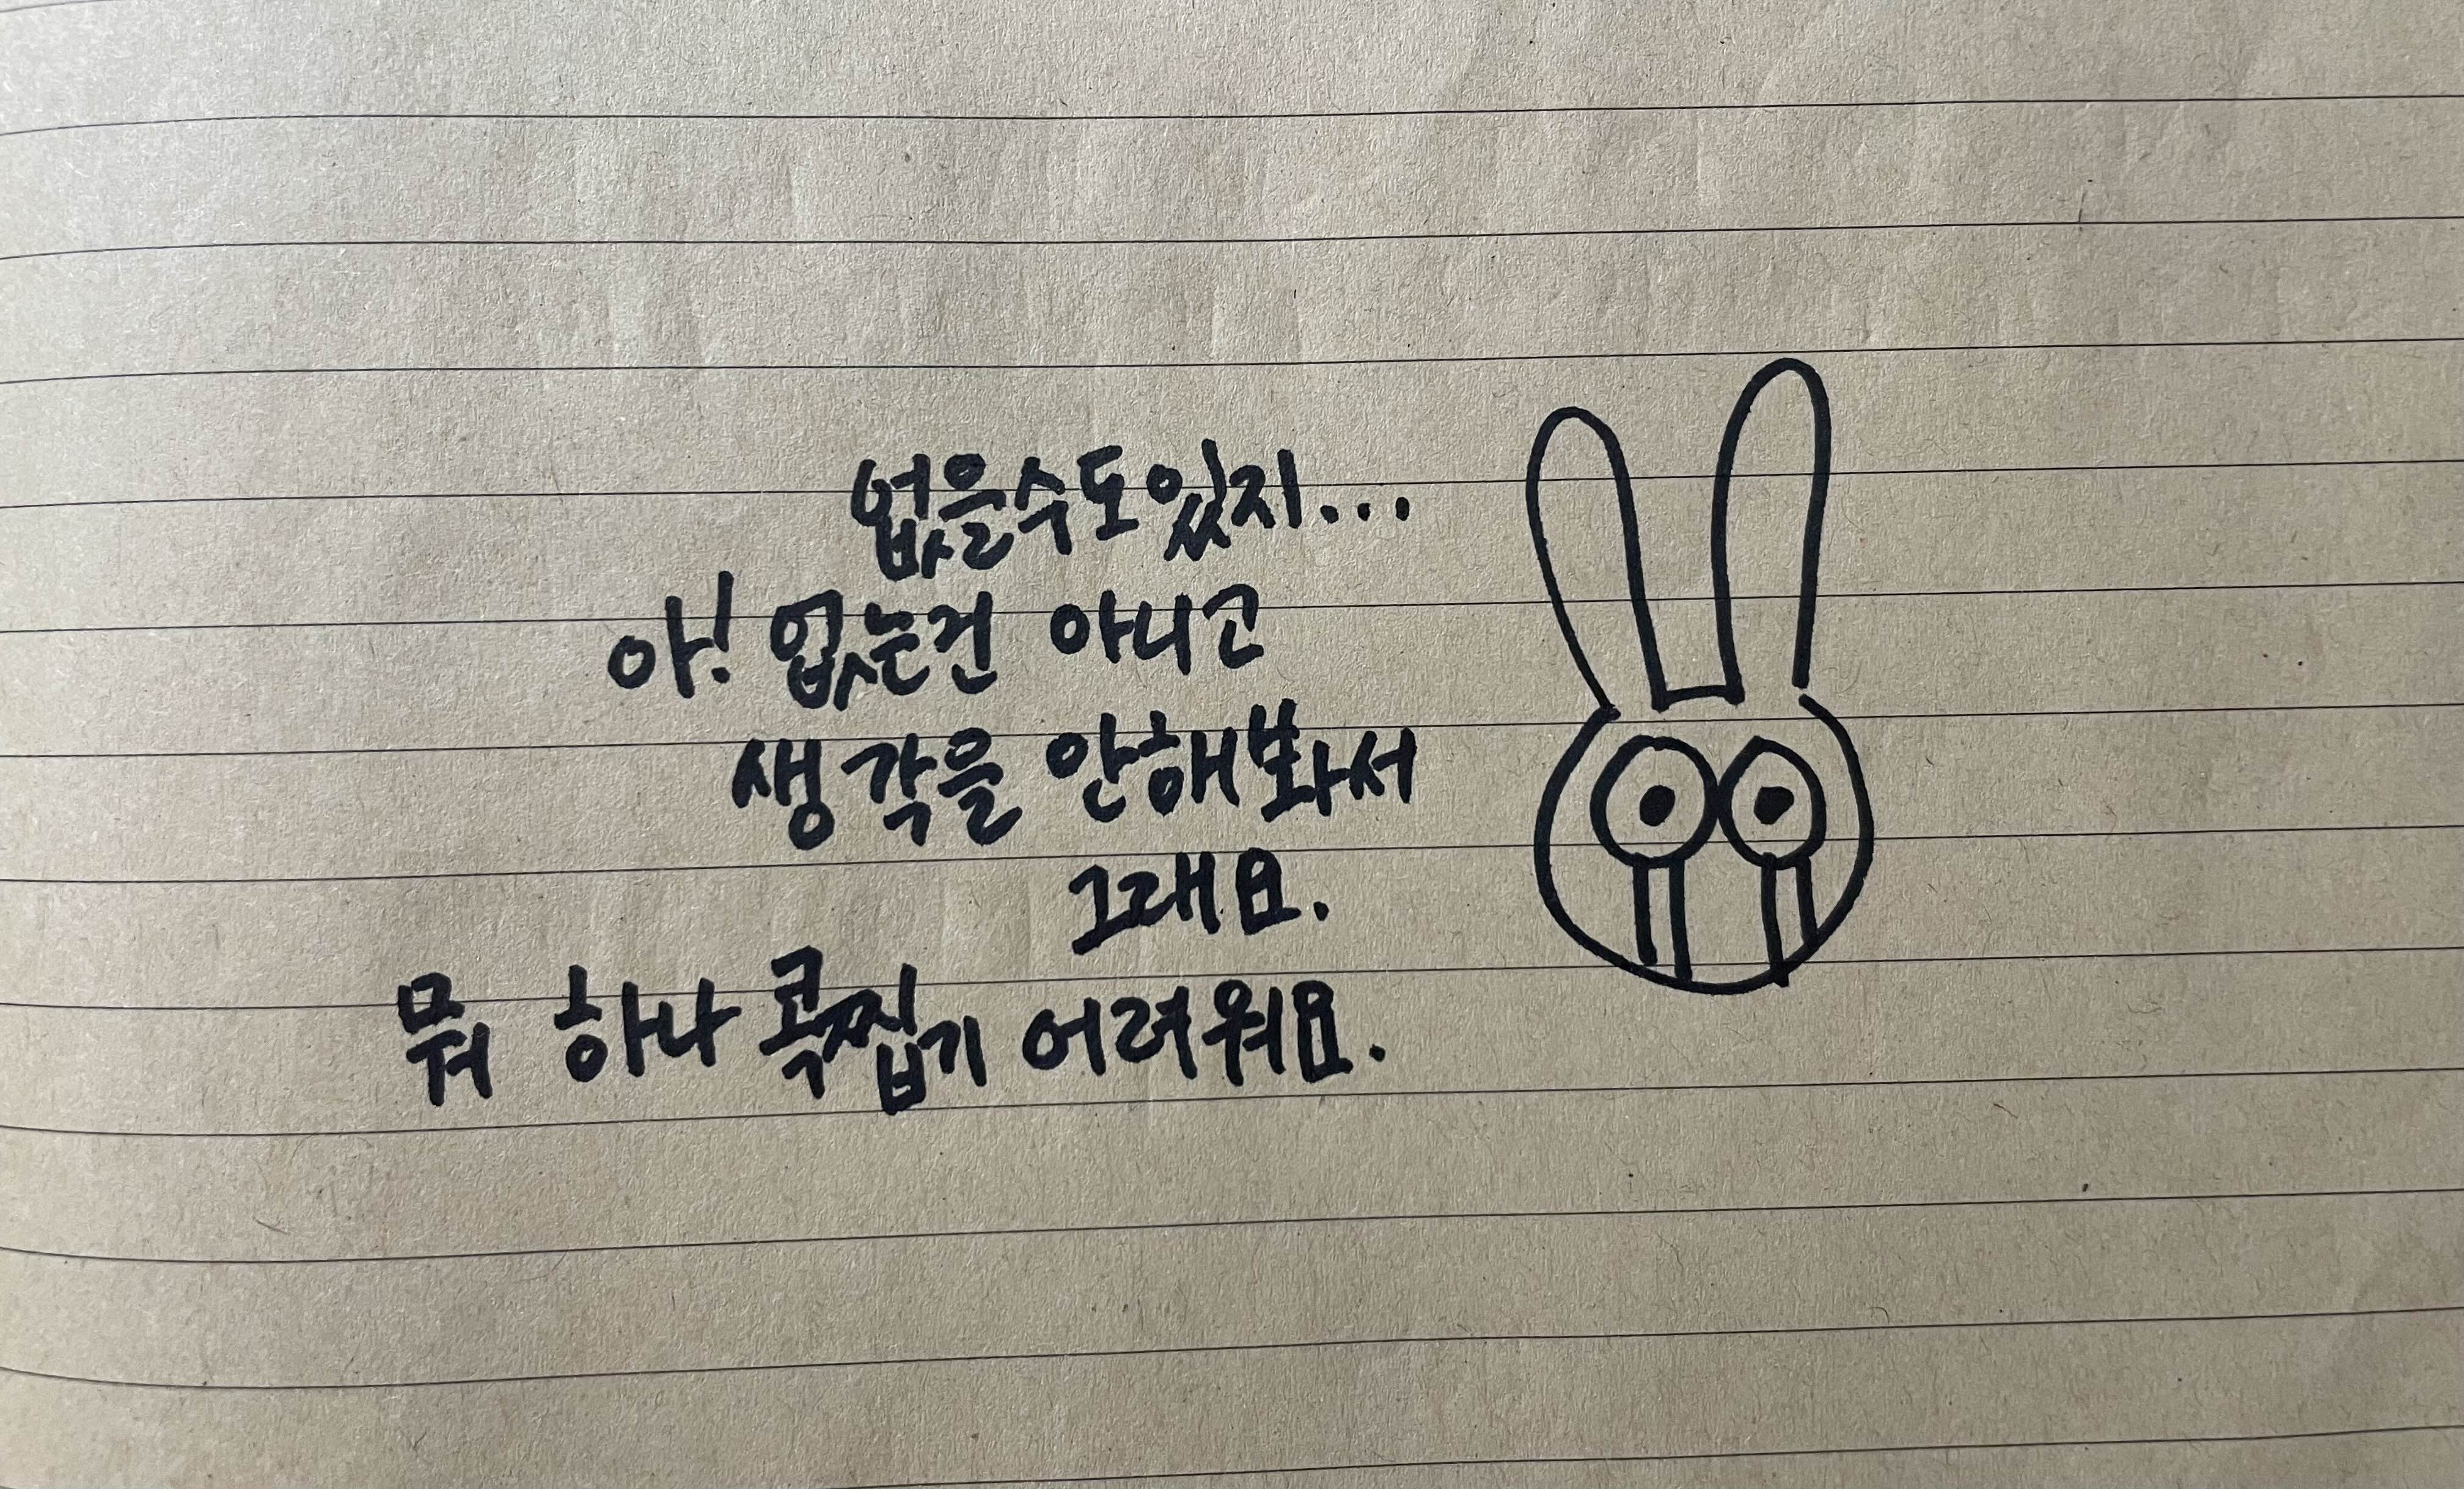 없을수도있지...
아! 없는건 아니고
생각을 안해봐서
그래요.
뭐 하나 콕찝기 어려워요.